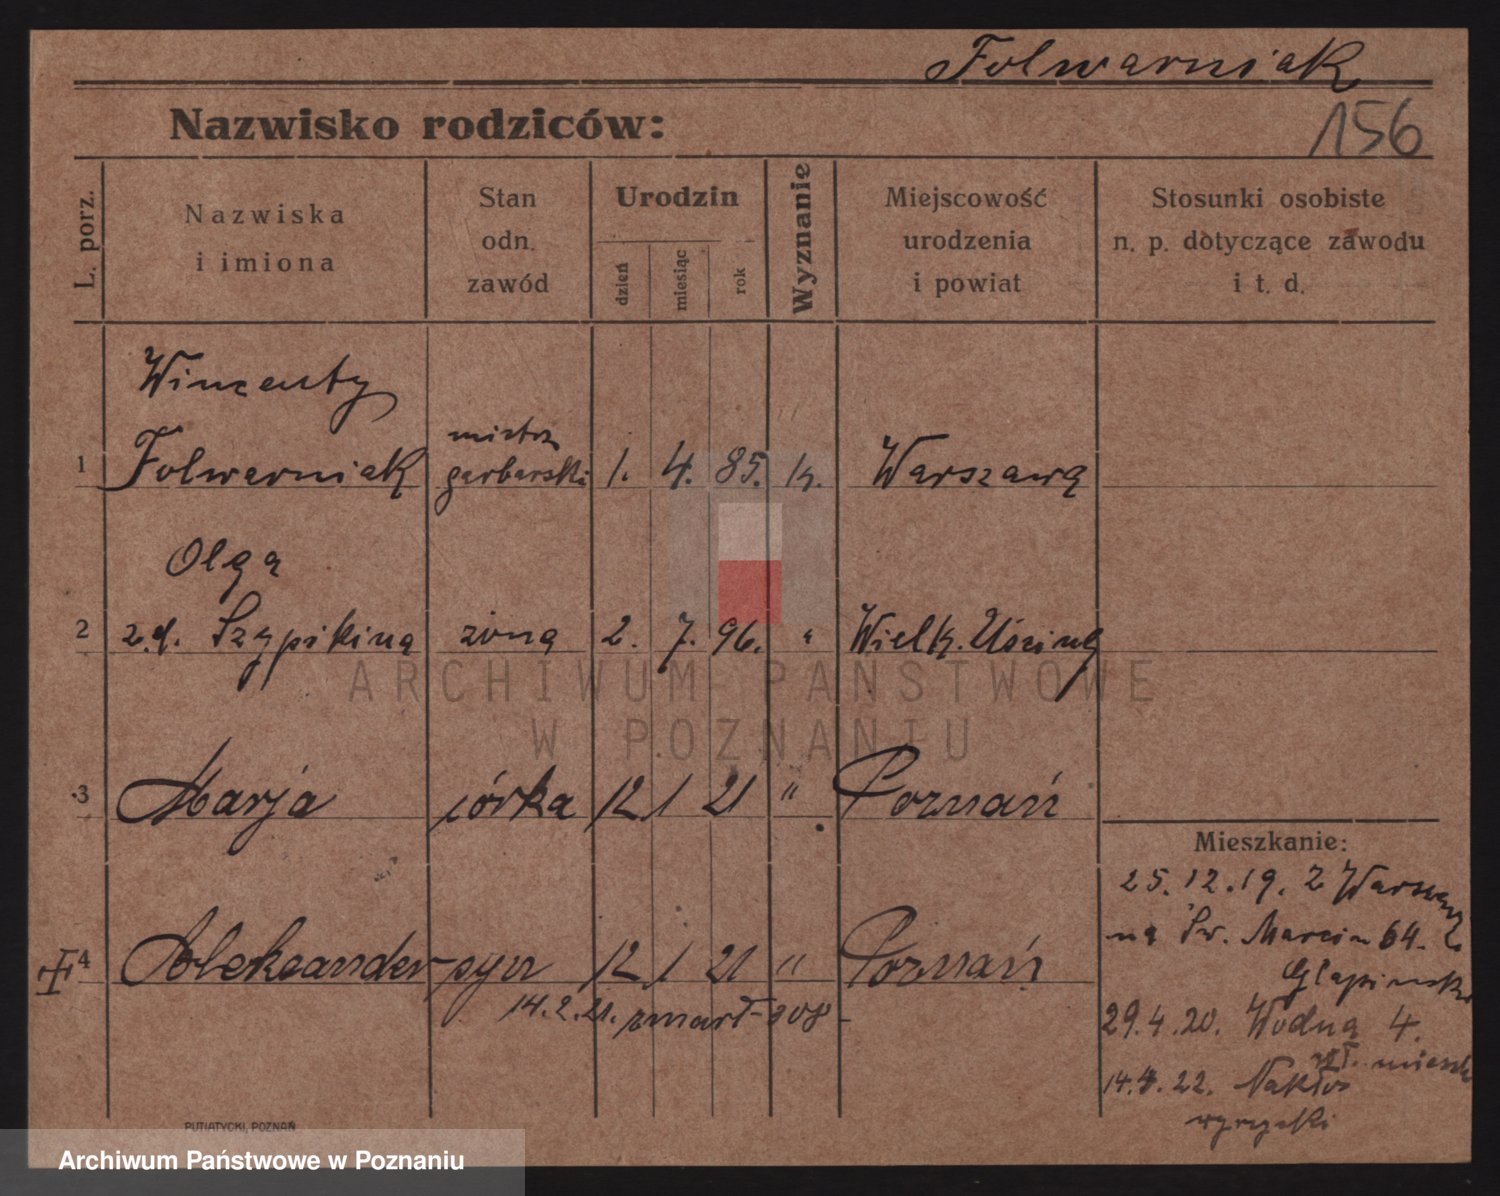 Folwarniak
Nazwisko rodziców:
156
L. porz.
Nazwiska
i imiona
Stan
odn.
zawód
Urodzin
dzień
miesiąc
rok
Wyznanie
Miejscowość
urodzenia
i powiat
Stosunki osobiste
n. p. dotyczące zawodu
i t. d.
Wincenty
mistrz
1 Folwarniak garbarski 1. 4. 85. k. Warszawa
Olga
2 z d. Szypikina żona 2. 7. 96. " Wielk.
ARCHIWUM PAŃSTWOWE
W POZNANIU
3 Marja córka 12 1 21 " Poznań
Mieszkanie:
25.12.19. z Warszawy
na Św. Marcin 64. z
4 Aleksander syn 12 1 21 " Poznań
14.2.21. zmarł 208
29.4.20. Wodna 4.
14.4.22. Nakło
wyrzyski
PUTIATYCKI, POZNAŃ
Archiwum Państwowe w Poznaniu